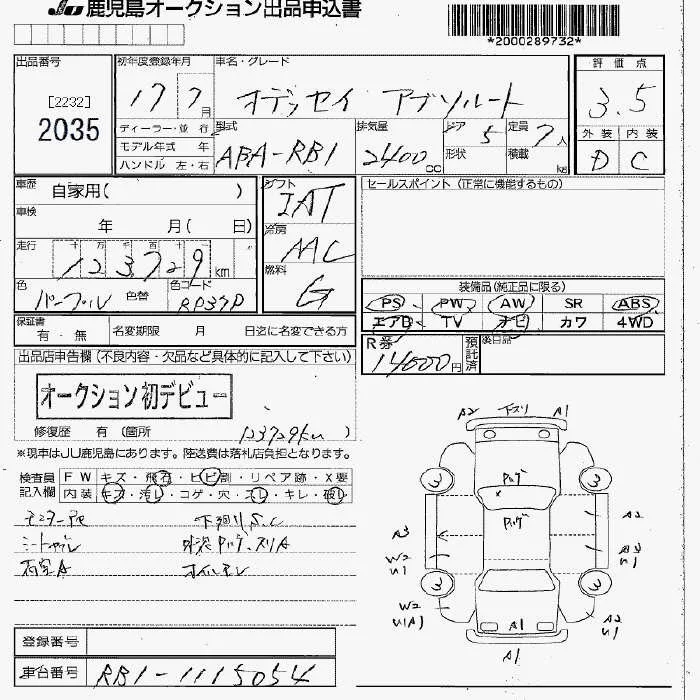 JU 鹿児島オークション出品申込書
*2000289732*
出品番号
[2232]
2035
初年度登録年月
17 7月
ディーラー・並 行
モデル年式 年
ハンドル 左・右
車名・グレード
オデッセイ アブソルート
型式
ABA-RB1
排気量
2400cc
ドア 5
形状
定員 7人
積載 kg
評 価 点
3.5
外 装 内 装
D C
車歴
自家用( )
車検
年 月( 日)
走行
十 万 千 百 十
123729km
色
パープル
色替
色コード
RP37P
シフト
IAT
冷房
AAC
燃料
G
セールスポイント (正常に機能するもの)
装備品(純正品に限る)
PS PW AW SR ABS
エアB TV ナビ カワ 4WD
保証書
有・無
名変期限 月 日迄に名変できる方
R券
14600円
預託済
後日品
出品店申告欄(不良内容・欠品など具体的に記入して下さい)
オークション初デビュー
修復歴 有(箇所 )
123729km
※現車はJU鹿児島にあります。陸送費は落札店負担となります。
検査員
記入欄
FW キズ・飛石・ヒビ割・リペア跡・X要
内装 キズ・汚レ・コゲ・穴・スレ・キレ・破レ
下廻りS.C
オイルモレ
A2 下スリ A1
3 3
A2
W2
U1
A2
3 3
W2
U1
A1
A2
U1
A1
登録番号
車台番号
RB1-1115054